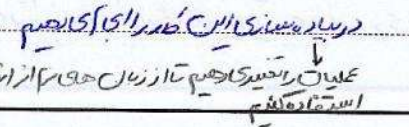 در پیاده سازی این کدر را ای ای می دهیم
عملیات را تغییر می دهیم تا از زبان های
استفاده کنیم